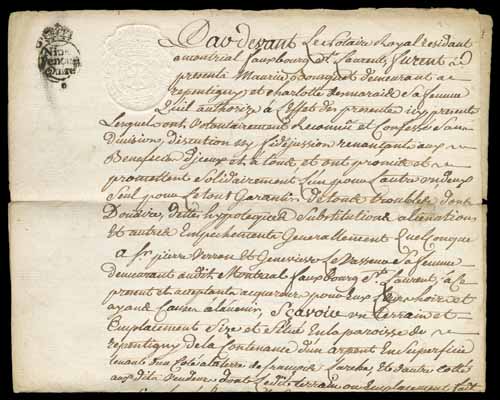 Pardevant Le Notaire Royal residant
a montréal fauxbourg St. Laurent, furent
presents Maurice Bousquet demeurant a
repentigny et charlotte sa femme
Qu'il authorize à L'effet des presentes icy presente
Lesquels ont, Volontairement Reconnu et Confessé Sans
division, discution ny fidejussion renonçant aux
Benefices D'jceux et à toute et ont promis et
promettent Solidairement L'un pour L'autre un d'eux
Seul pour Le tout Garantir de toute troubles, dons
Douaire, dette hypoteque Substitutions alienations
Et autres Empechements Generallement Quelconque
a Sr. pierre Verron et Genevieve Le Vasseur Sa femme
demeurant audit Montreal fauxbourg St. Laurent, à Ce
present et acceptants acquereurs pour Eux Leurs hoirs et
ayans Cause à L'avenir, Scavoir un terrain et
Emplacement Size et Situé En la paroisse de
repentigny de la Contenance d'un arpent En Superficie
tenant d'un Coté à la terre de françois et d'autre Coté
aux dits Vendeur dont Ledit terrain ou Emplacement fait